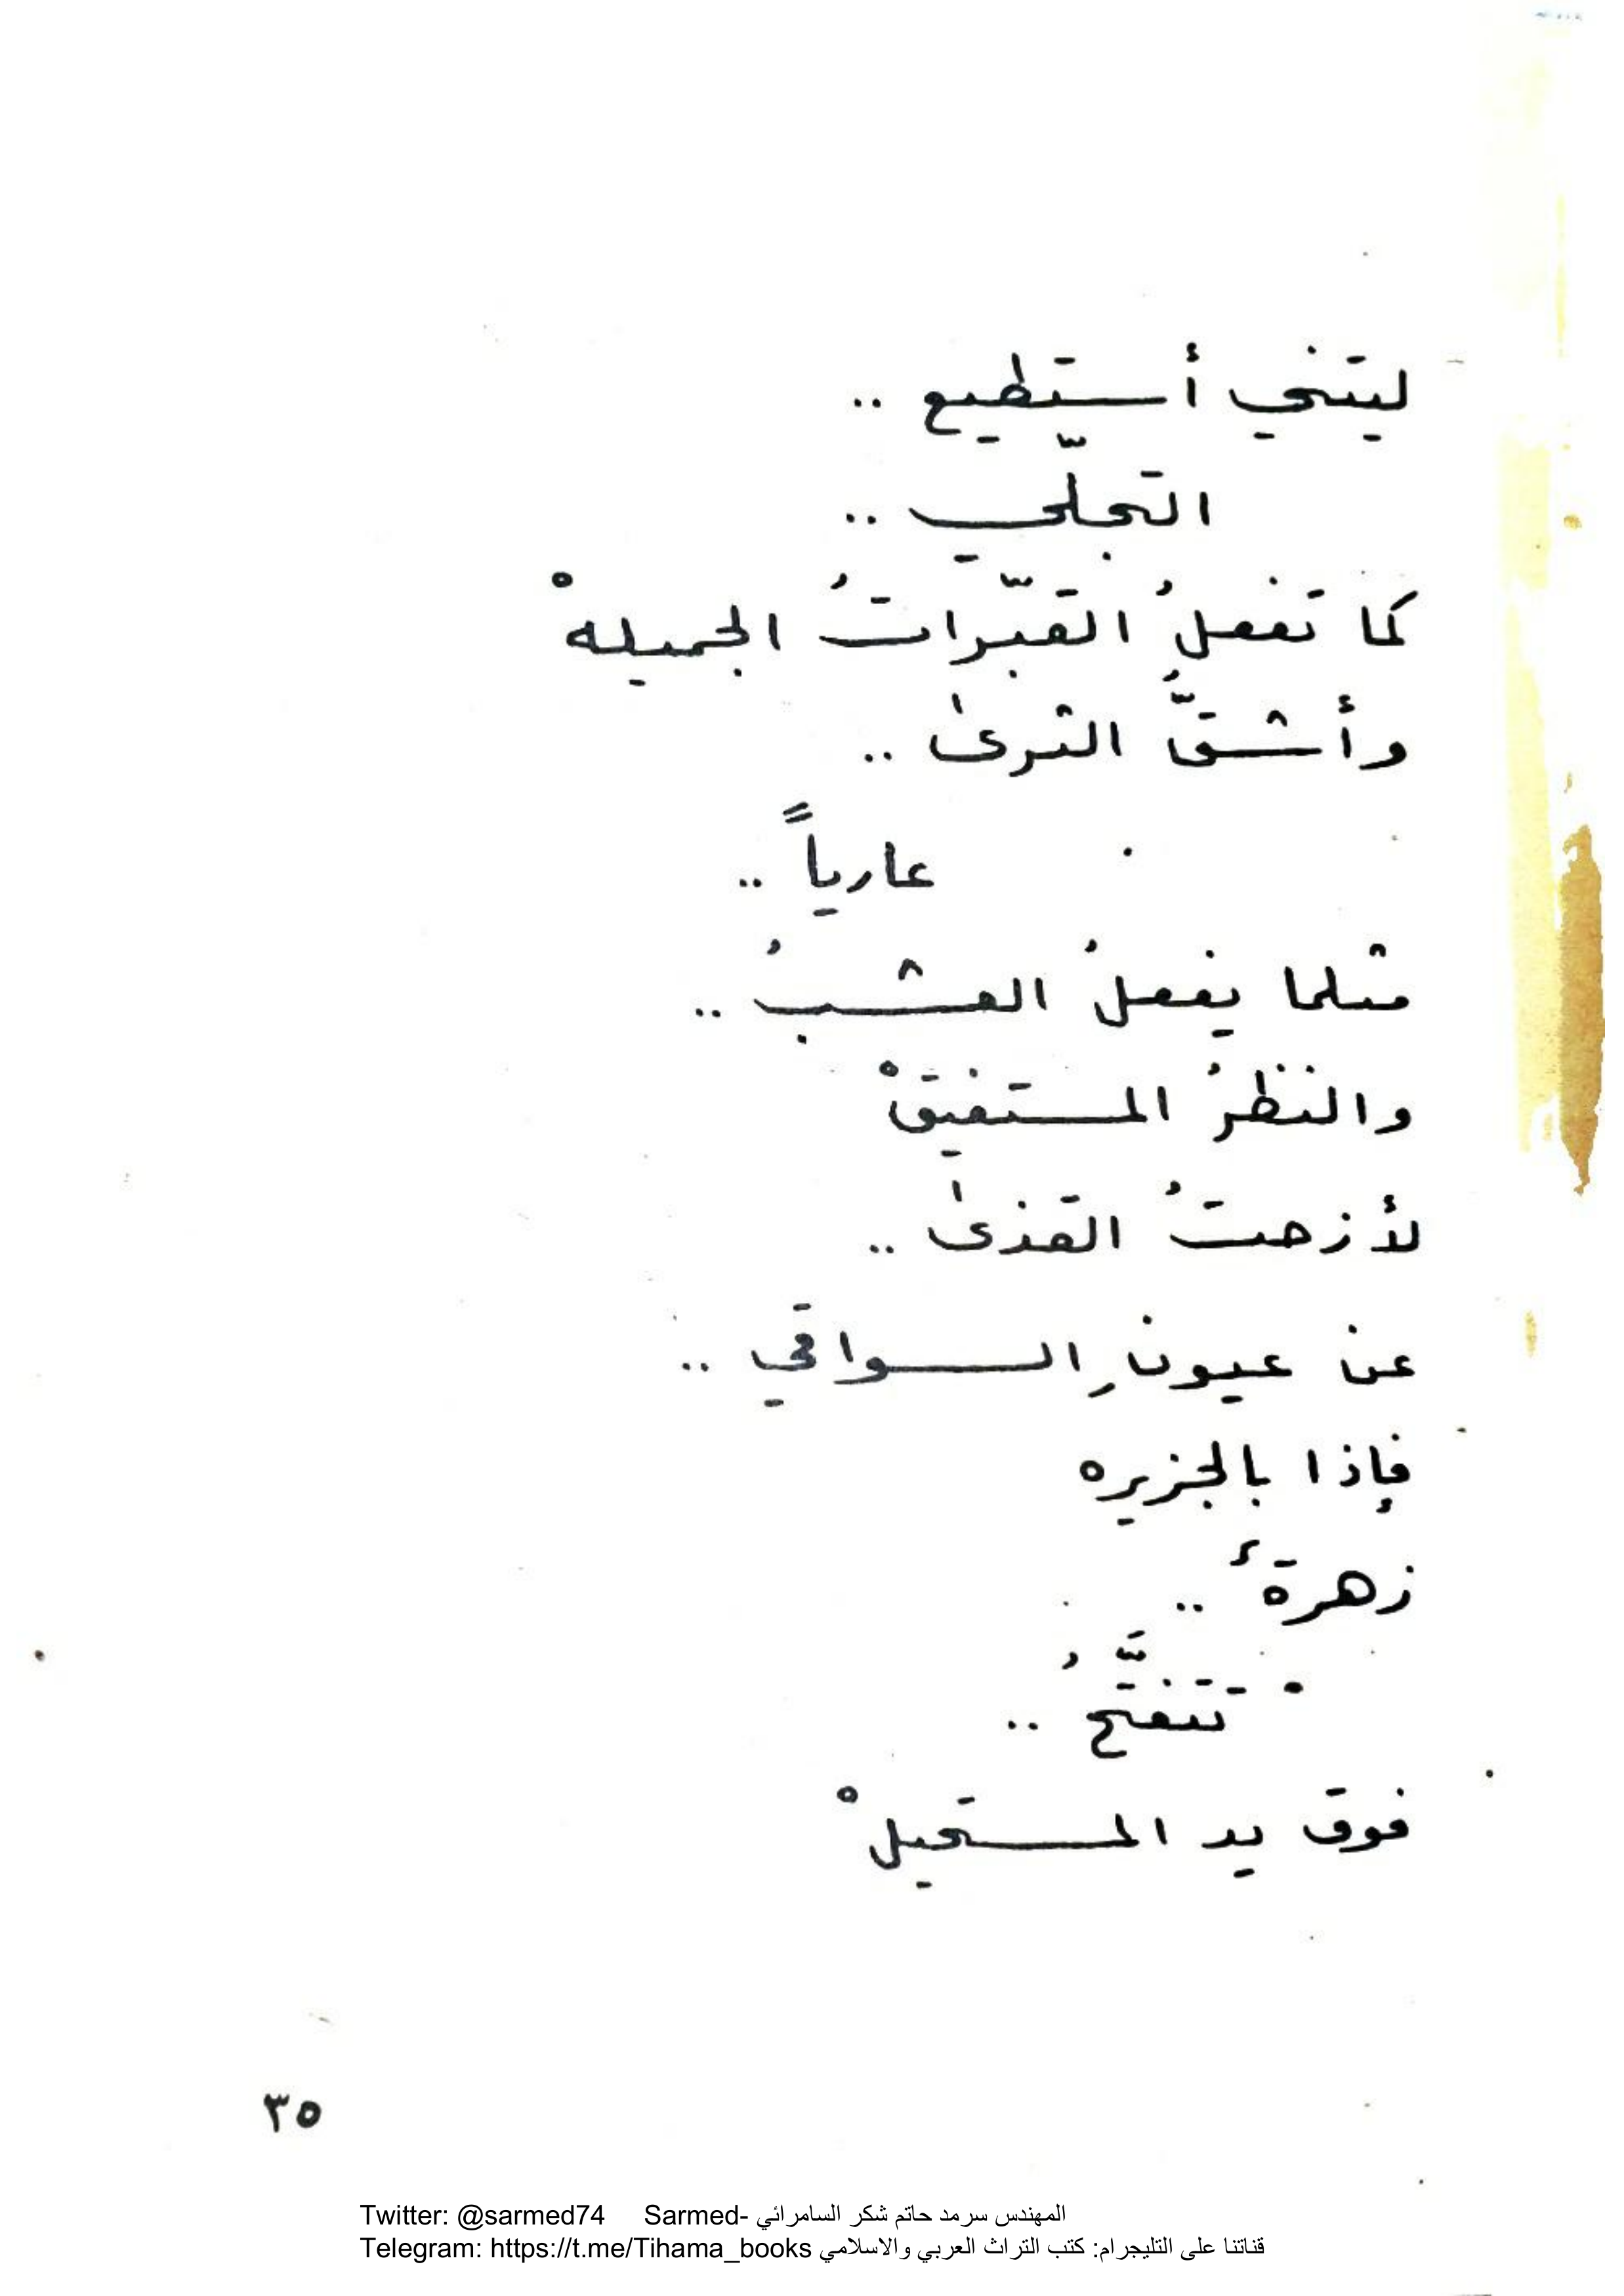 ليتني أستطيع ..
التجلّي ..
كما تفعلُ القبّراتُ الجميلهْ
وأشقُّ الثرىٰ ..
عارياً ..
مثلما يفعلُ العشبُ ..
والنظرُ المستفيقْ
لأزحتُ القذىٰ ..
عن عيونِ السواقي ..
فإذا بالجزيره
زهرةٌ ..
تتفتَّحُ ..
فوق يد المستحيلْ
٣٥
Twitter: @sarmed74 Sarmed- المهندس سرمد حاتم شكر السامرائي
Telegram: https://t.me/Tihama_books قناتنا على التليجرام: كتب التراث العربي والاسلامي